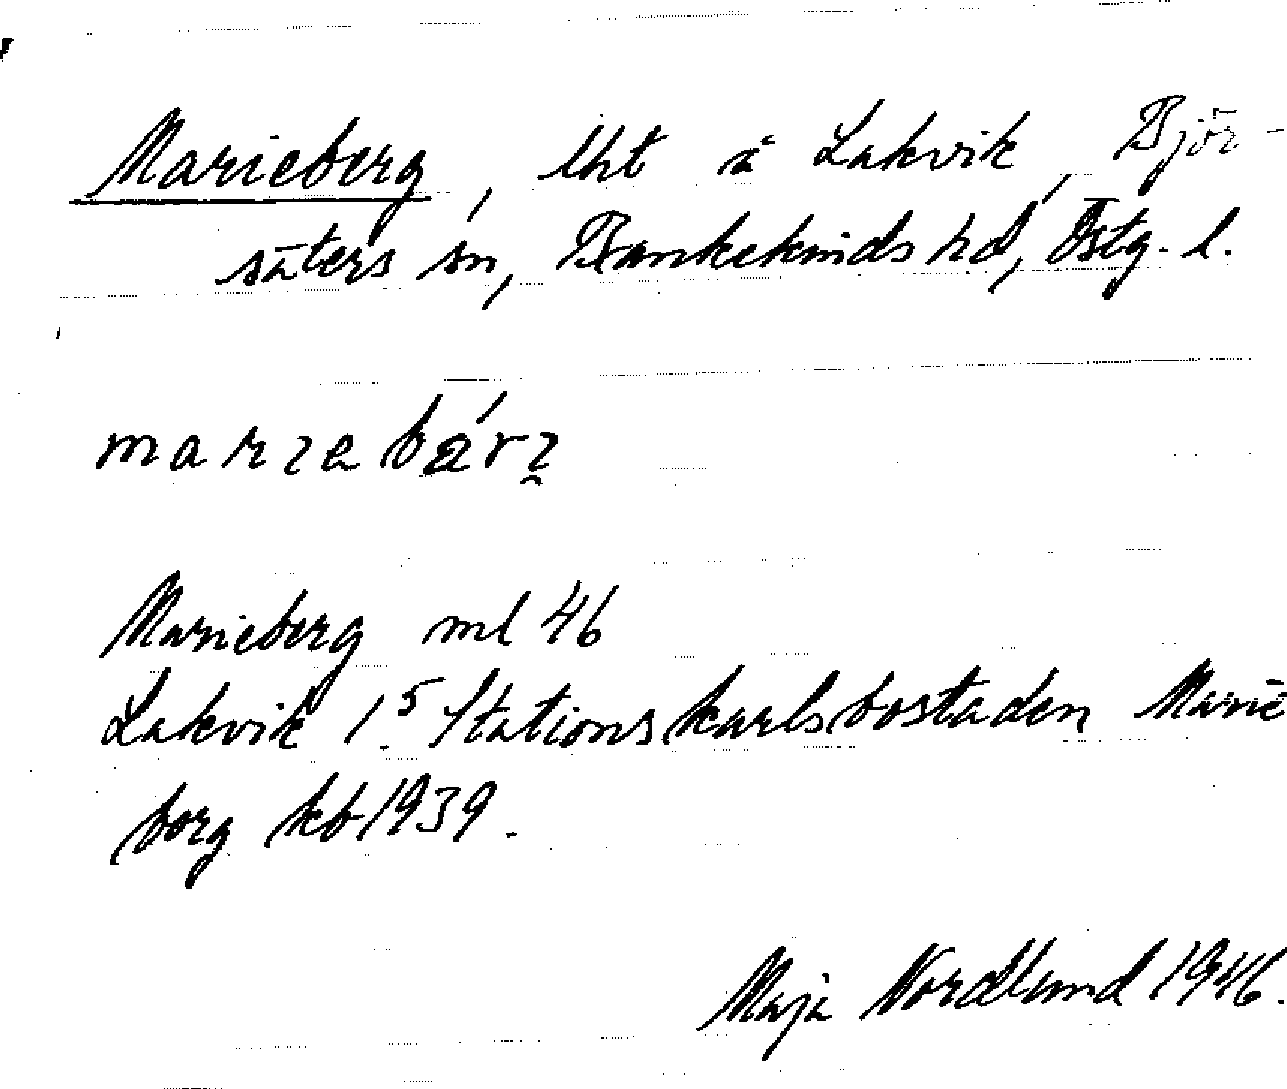 Marieberg, lht å Lakvik, Björ-
säters sn, Bankekinds hd, Östg. l.
Marieberg ml 46
Lakvik 1⁵ Stationskarlsbostaden Marie
borg kb 1939.
Maja Nordlund 1946.